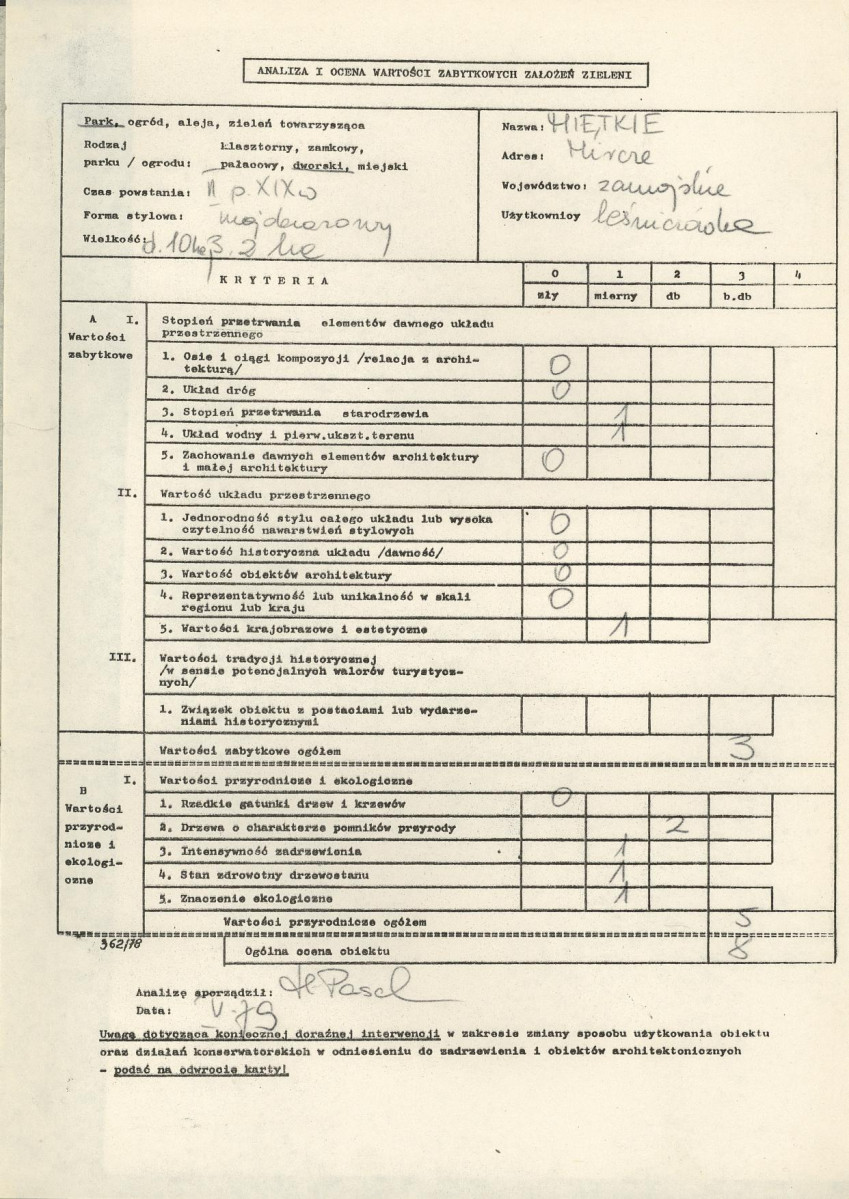 ANALIZA I OCENA WARTOŚCI ZABYTKOWYCH ZAŁOŻEŃ ZIELENI
Park, ogród, aleja, zieleń towarzysząca
Rodzaj klasztorny, zamkowy,
parku / ogrodu: pałacowy, dworski, miejski
Czas powstania: II p. XIX w
Forma stylowa:
Wielkość: d. 10 ha, 3.2 ha
Nazwa: MIĘTKIE
Adres: Mircze
Województwo: zamojskie
Użytkownicy leśniczówka
KRYTERIA
0 1 2 3 4
zły mierny db b.db
A I. Stopień przetrwania elementów dawnego układu
Wartości przestrzennego
zabytkowe
1. Osie i ciągi kompozycji /relacja z archi-
tekturą/ 0
2. Układ dróg 0
3. Stopień przetrwania starodrzewia 1
4. Układ wodny i pierw.ukszt.terenu 1
5. Zachowanie dawnych elementów architektury
i małej architektury 0
II. Wartość układu przestrzennego
1. Jednorodność stylu całego układu lub wysoka
czytelność nawarstwień stylowych 0
2. Wartość historyczna układu /dawność/ 0
3. Wartość obiektów architektury 0
4. Reprezentatywność lub unikalność w skali
regionu lub kraju 0
5. Wartości krajobrazowe i estetyczne 1
III. Wartości tradycji historycznej
/w sensie potencjalnych walorów turystycz-
nych/
1. Związek obiektu z postaciami lub wydarze-
niami historycznymi
Wartości zabytkowe ogółem 3
I. Wartości przyrodnicze i ekologiczne
B
Wartości
przyrod-
nicze i
ekologi-
czne
1. Rzadkie gatunki drzew i krzewów 0
2. Drzewa o charakterze pomników przyrody 2
3. Intensywność zadrzewienia 1
4. Stan zdrowotny drzewostanu 1
5. Znaczenie ekologiczne 1
Wartości przyrodnicze ogółem 5
362/78
Ogólna ocena obiektu 8
Analizę sporządził:
Data: V-79
Uwagę dotycząca koniecznej doraźnej interwencji w zakresie zmiany sposobu użytkowania obiektu
oraz działań konserwatorskich w odniesieniu do zadrzewienia i obiektów architektonicznych
- podać na odwrocie karty!